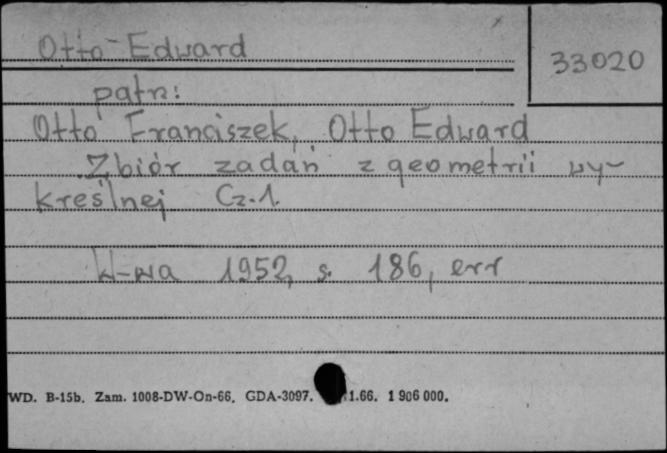 Otto Edward
33020
patrz:
Otto Franciszek, Otto Edward
Zbiór zadań z geometrii wy-
kreślnej Cz.1.
W-wa 1952, s. 186, err
WD. B-15b. Zam. 1008-DW-On-66. GDA-3097. 1.66. 1 906 000.